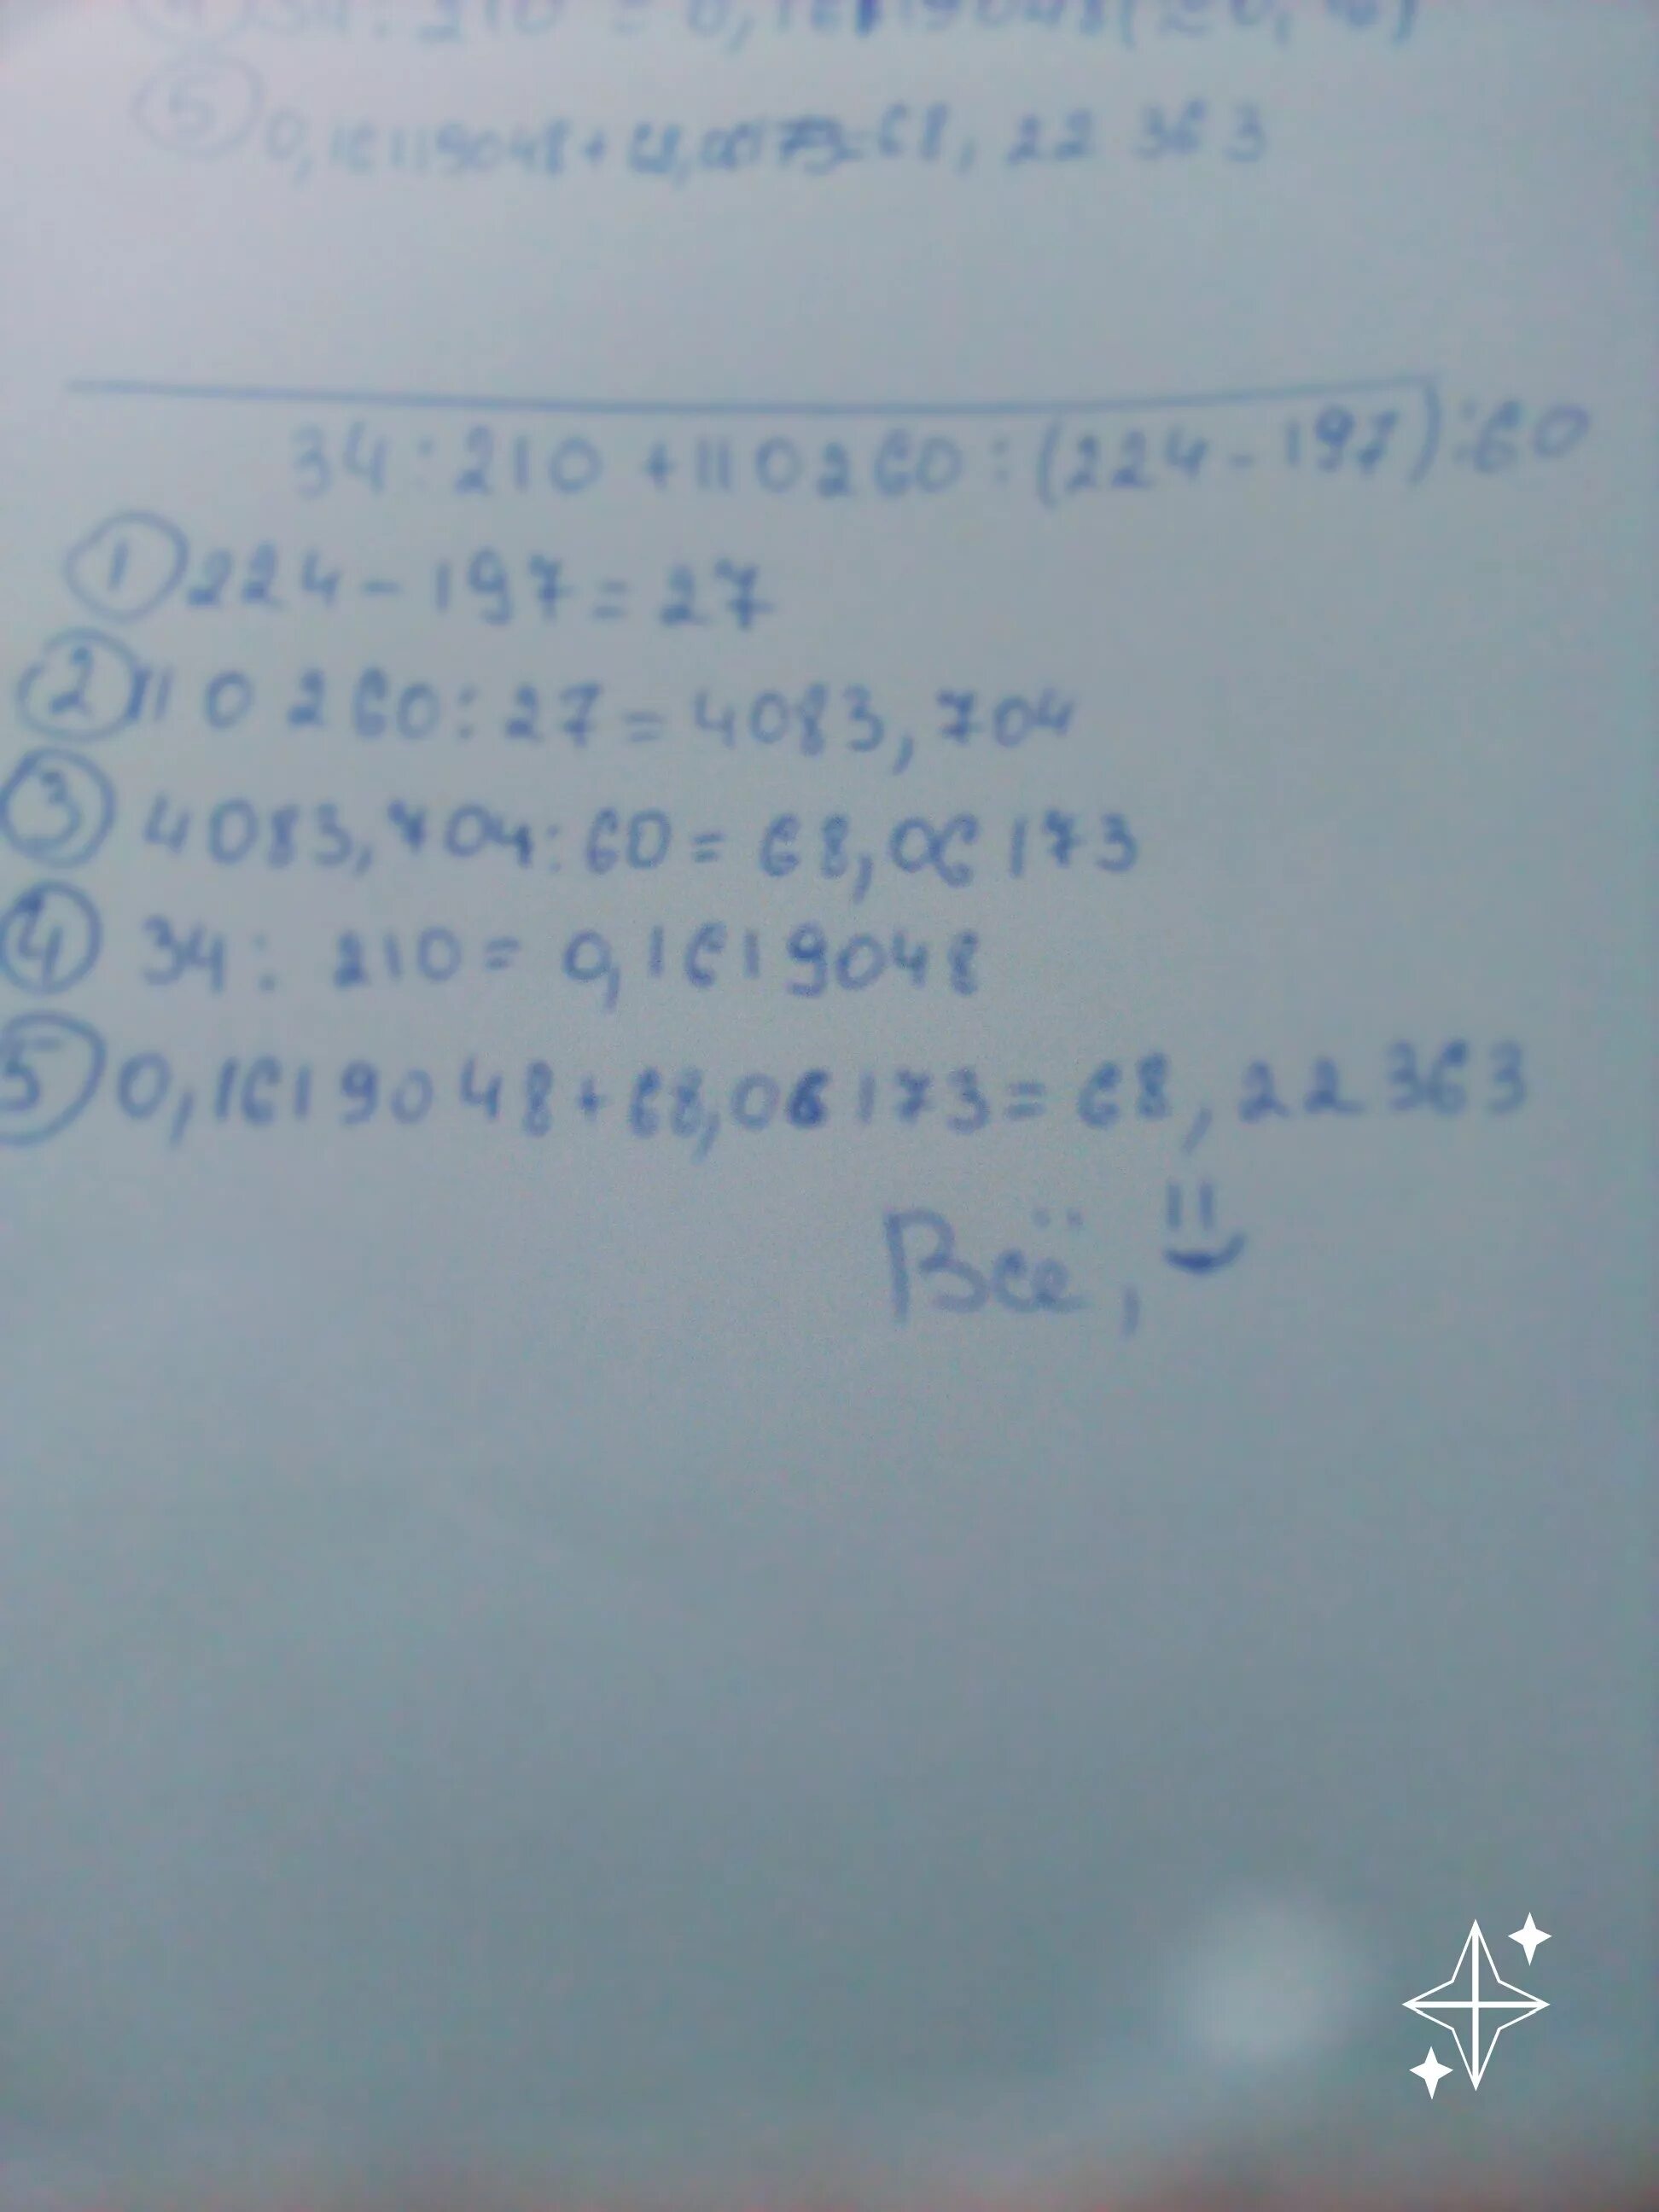 ④ 34 : 210 = 0,1619048 (≈0,16)
⑤ 0,1619048 + 68,06173 = 68,22 363
34 : 210 + 110260 : (224 - 197) : 60
① 224 - 197 = 27
② 110 260 : 27 = 4083,704
③ 4083,704 : 60 = 68,06173
④ 34 : 210 = 0,1619048
⑤ 0,1619048 + 68,06173 = 68,22363
Всё,